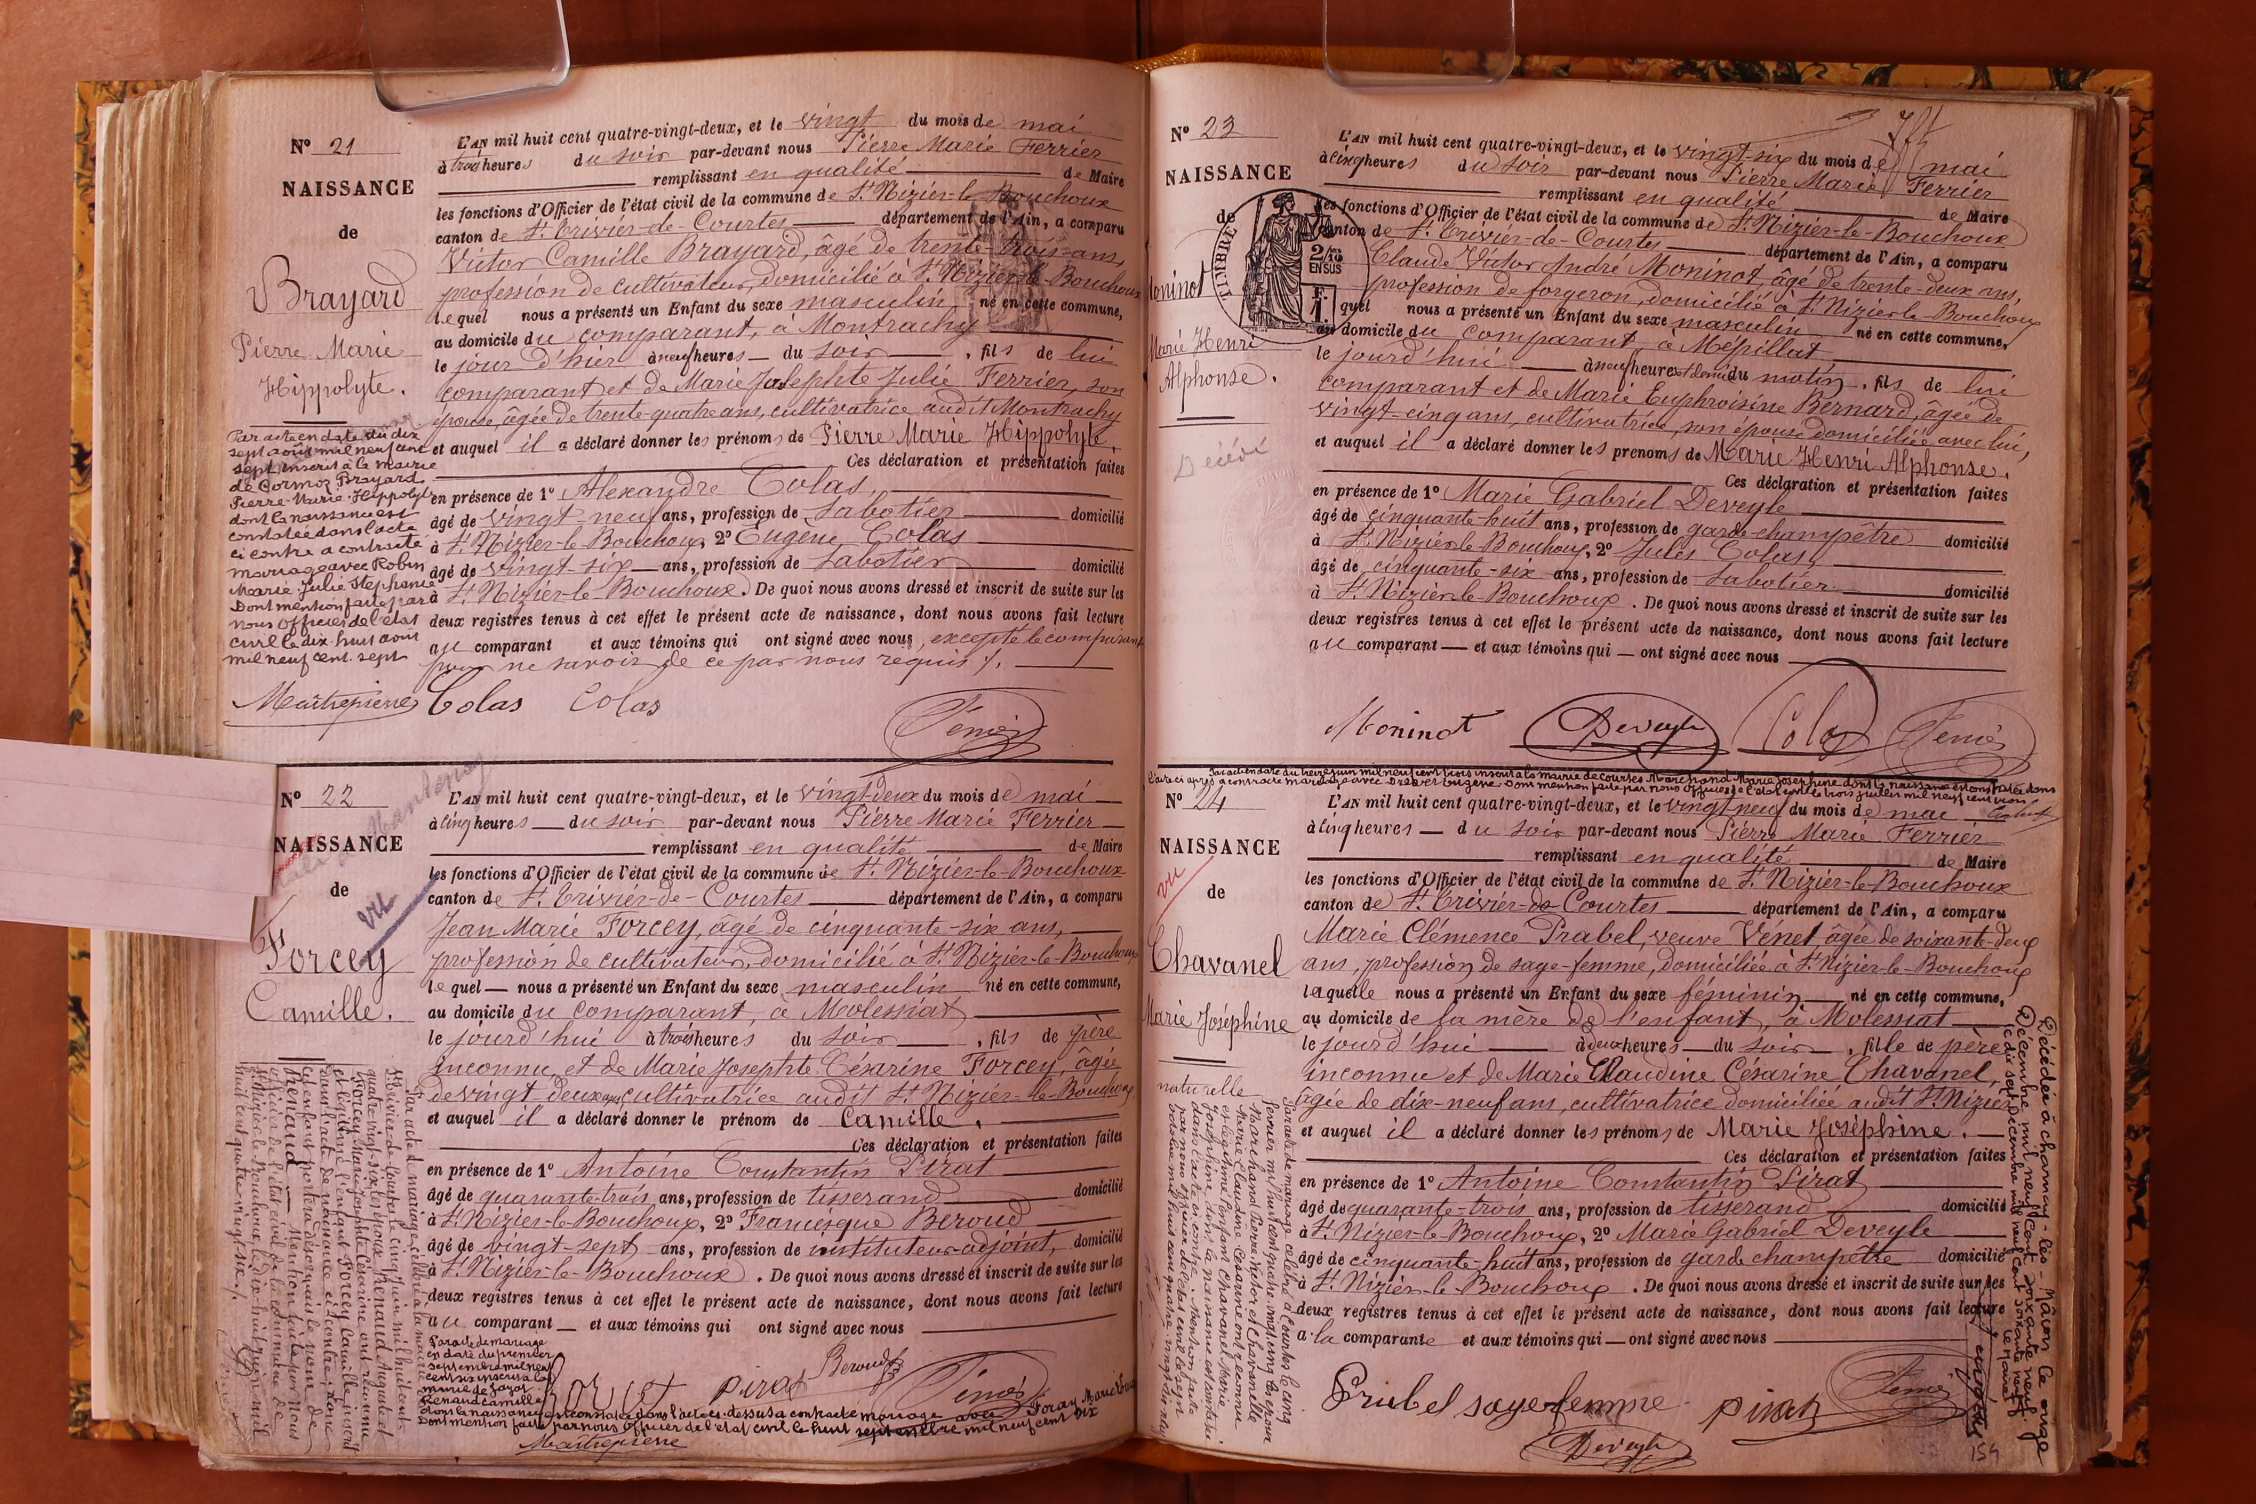 N° 21
NAISSANCE
de
Brayard
Pierre Marie
Hippolyte.
Par acte en date du dix
sept août mil neuf cent
sept inscrit à la mairie
de Cormoz Brayard
Pierre-Marie-Hippolyte
dont la naissance est
constatée dans l'acte
ci contre a contracté
mariage avec Robin
Marie Julie Stephanie
Dont mention faite par
nous officier de l'état
civil le dix huit août
mil neuf cent sept
L'AN mil huit cent quatre-vingt-deux, et le vingt du mois de mai
à trois heures du soir par-devant nous Pierre Marie Ferrier
remplissant en qualité de Maire
les fonctions d'Officier de l'état civil de la commune de St. Nizier-le-Bouchoux
canton de St. Trivier-de-Courtes département de l'Ain, a comparu
Victor Camille Brayard, âgé de trente-trois ans,
profession de cultivateur, domicilié à St. Nizier-le-Bouchoux
lequel nous a présenté un Enfant du sexe masculin né en cette commune,
au domicile du comparant, à Montrachy
le jour d'hier à neuf heures du soir , fils de lui
comparant et de Marie Josephte Julie Ferrier, son
épouse, âgée de trente-quatre ans, cultivatrice audit Montrachy
et auquel il a déclaré donner les prénoms de Pierre Marie Hippolyte.
Ces déclaration et présentation faites
en présence de 1° Alexandre Colas,
âgé de vingt-neuf ans, profession de Sabotier domicilié
à St. Nizier-le-Bouchoux, 2° Eugène Colas
âgé de vingt-six ans, profession de Sabotier domicilié
à St. Nizier-le-Bouchoux. De quoi nous avons dressé et inscrit de suite sur les
deux registres tenus à cet effet le présent acte de naissance, dont nous avons fait lecture
au comparant et aux témoins qui ont signé avec nous, excepté le comparant
pour ne savoir de ce par nous requis /.
Maîtrepierre Colas Colas
N° 22
NAISSANCE
de
vu
Forcey
Camille.
L'AN mil huit cent quatre-vingt-deux, et le vingt-deux du mois de mai
à cinq heures du soir par-devant nous Pierre Marie Ferrier
remplissant en qualité de Maire
les fonctions d'Officier de l'état civil de la commune de St. Nizier-le-Bouchoux
canton de St. Trivier-de-Courtes département de l'Ain, a comparu
Jean Marie Forcey, âgé de cinquante-six ans,
profession de cultivateur, domicilié à St. Nizier-le-Bouchoux
lequel nous a présenté un Enfant du sexe masculin né en cette commune,
au domicile du comparant, à Molessiat
le jourd'hui à trois heures du soir , fils de père
inconnu et de Marie Josephte Césarine Forcey, âgée
de vingt-deux ans cultivatrice audit St. Nizier-le-Bouchoux
et auquel il a déclaré donner le prénom de Camille.
Ces déclaration et présentation faites
en présence de 1° Antoine Constantin Pirat
âgé de quarante-trois ans, profession de tisserand domicilié
à St. Nizier-le-Bouchoux, 2° Francisque Beroud
âgé de vingt-sept ans, profession de instituteur-adjoint, domicilié
à St. Nizier-le-Bouchoux. De quoi nous avons dressé et inscrit de suite sur les
deux registres tenus à cet effet le présent acte de naissance, dont nous avons fait lecture
au comparant et aux témoins qui ont signé avec nous
Par acte de mariage
en date du premier
septembre mil neuf
cent six inscrit à la
mairie de Jayat
Renaud Camille
dont la naissance est constatée dans l'acte ci-dessus a contracté mariage avec
Dont mention faite par nous officier de l'état civil le huit septembre mil neuf cent six
Pirat Beroud
Maîtrepierre
N° 23
NAISSANCE
de
Moninot
Marie Henri
Alphonse.
Décédé
TIMBRE
2/10
EN SUS
L'AN mil huit cent quatre-vingt-deux, et le vingt-six du mois de mai
à cinq heures du soir par-devant nous Pierre Marie Ferrier
remplissant en qualité de Maire
les fonctions d'Officier de l'état civil de la commune de St. Nizier-le-Bouchoux
canton de St. Trivier-de-Courtes département de l'Ain, a comparu
Claude Victor André Moninot, âgé de trente-deux ans,
profession de forgeron, domicilié à St. Nizier-le-Bouchoux
quel nous a présenté un Enfant du sexe masculin né en cette commune,
au domicile du comparant, à Mépillat
le jourd'hui à neuf heures et demi du matin, fils de lui
comparant et de Marie Euphroisine Bernard, âgée de
vingt-cinq ans, cultivatrice, son épouse domiciliée avec lui,
et auquel il a déclaré donner les prénoms de Marie Henri Alphonse.
Ces déclaration et présentation faites
en présence de 1° Marie Gabriel Deveyle
âgé de cinquante-huit ans, profession de garde-champêtre domicilié
à St. Nizier-le-Bouchoux, 2° Jules Colas,
âgé de cinquante-six ans, profession de Sabotier domicilié
à St. Nizier-le-Bouchoux. De quoi nous avons dressé et inscrit de suite sur les
deux registres tenus à cet effet le présent acte de naissance, dont nous avons fait lecture
au comparant et aux témoins qui ont signé avec nous
Moninot Deveyle Colas
Par acte en date du treize juin mil neuf cent trois inscrit à la mairie de Courtes Marchand Marie Josephine dont la naissance est constatée dans
l'acte ci après a contracté mariage avec Eugène Dont mention faite par nous officier de l'état civil le trois juillet mil neuf cent trois
N° 24
NAISSANCE
vu
de
Chavanel
Marie Joséphine
naturelle
L'AN mil huit cent quatre-vingt-deux, et le vingt-neuf du mois de mai
à cinq heures du soir par-devant nous Pierre Marie Ferrier
remplissant en qualité de Maire
les fonctions d'Officier de l'état civil de la commune de St. Nizier-le-Bouchoux
canton de St. Trivier-de-Courtes département de l'Ain, a comparu
Marie Clémence Prabel, veuve Vénet, âgée de soixante-deux
ans, profession de sage-femme, domiciliée à St. Nizier-le-Bouchoux
laquelle nous a présenté un Enfant du sexe féminin né en cette commune,
au domicile de la mère de l'enfant, à Molessiat
le jourd'hui à deux heures du soir , fille de père
inconnu et de Marie Claudine Césarine Chavanel,
âgée de dix-neuf ans, cultivatrice domiciliée audit St. Nizier
et auquel il a déclaré donner les prénoms de Marie Joséphine.
Ces déclaration et présentation faites
en présence de 1° Antoine Constantin Pirat
âgé de quarante-trois ans, profession de tisserand domicilié
à St. Nizier-le-Bouchoux, 2° Marie Gabriel Deveyle
âgé de cinquante-huit ans, profession de garde champêtre domicilié
à St. Nizier-le-Bouchoux. De quoi nous avons dressé et inscrit de suite sur les
deux registres tenus à cet effet le présent acte de naissance, dont nous avons fait lecture
à la comparante et aux témoins qui ont signé avec nous
Décédée à Charnay-lès-Mâcon le onze
Décembre mil neuf cent soixante neuf.
le dix sept Décembre mil neuf cent soixante neuf
Le Maire
sage femme Pirat
Deveyle
154